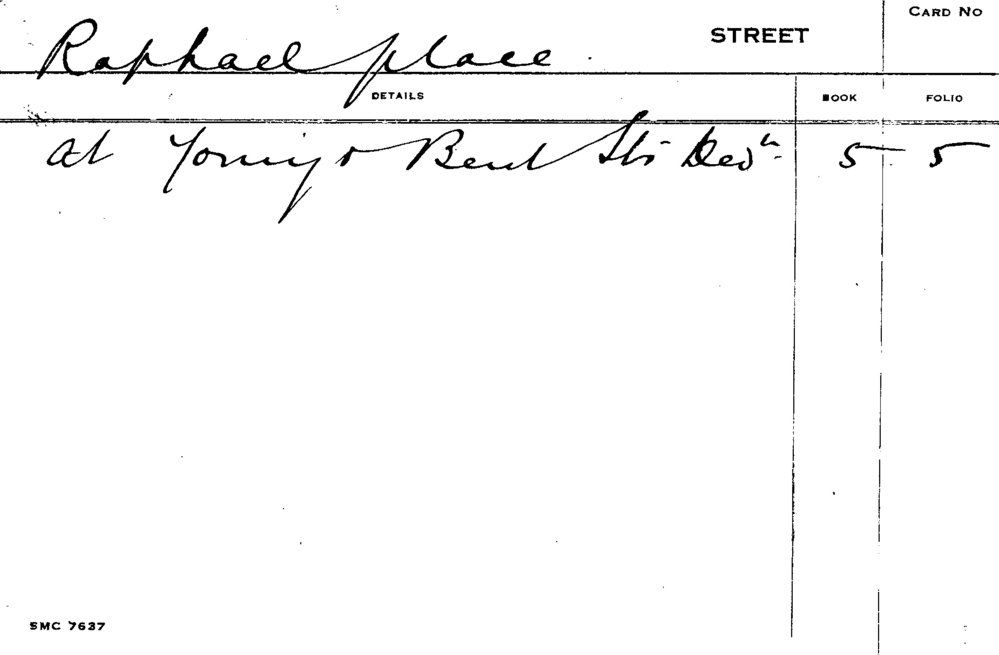 CARD NO
Raphael place. STREET
DETAILS BOOK FOLIO
at Young & Bent Sts Ded^n. 5 5
SMC 7637